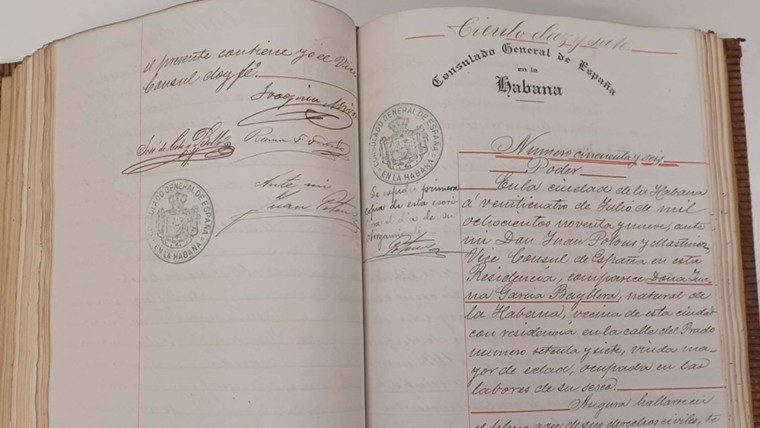 el presente contiene yo el Vice
Consul doy fé.
Joaquin
José de
Ramon F.
Ante mi
Juan Potous
CONSULADO GENERAL DE ESPAÑA
EN LA HABANA
Ciento diez y siete
Consulado General de España
en la
Habana
CONSULADO GENERAL DE ESPAÑA
EN LA HABANA
Se expide primera
copia de esta
el dia de su
otorgamiento
Numero cincuenta y seis
Poder
En la ciudad de la Habana
á veinticuatro de Julio de mil
ochocientos noventa y nueve, ante
mi Don Juan Potous y Martinez
Vice Consul de España en esta
Residencia, comparece Doña Jua-
na Garcia Bayllera, natural de
la Habana, vecina de esta ciudad
con residencia en la calle del Prado
numero setenta y siete, viuda ma-
yor de edad, ocupada en las
labores de su sexo
Asegura hallarse en
el pleno goce de sus derechos civiles, te